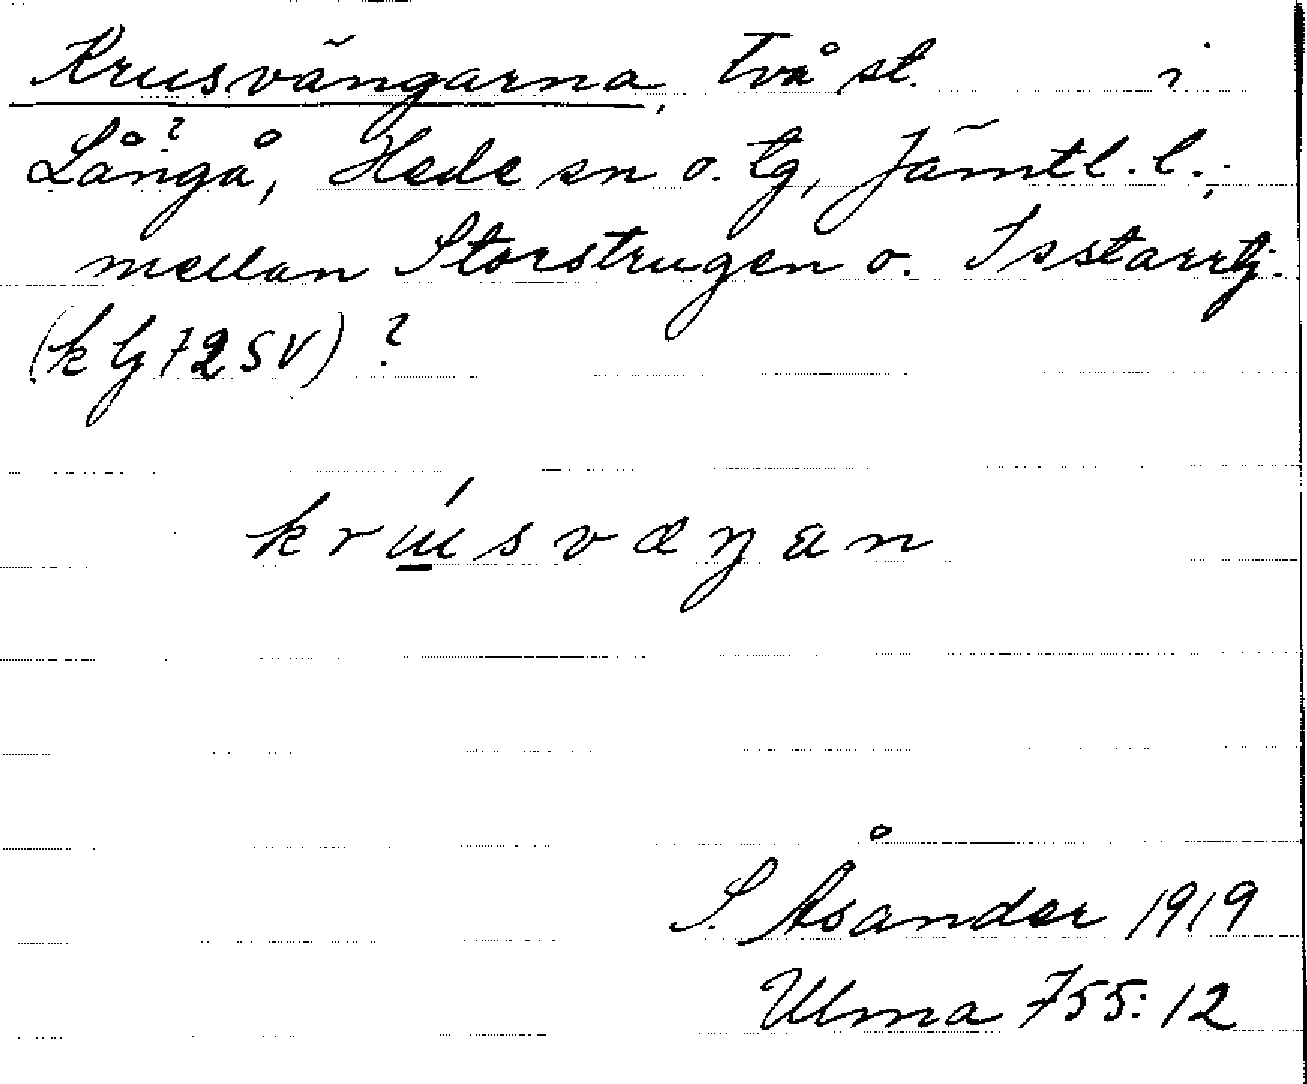 Krusvängarna, två st. i
Långå?, Hede sn o. tg, Jämtl. l.;
mellan Storstrugen o. Isstarrtj.
(k bj 72 SV) ?
krúsvæŋan
S. Åsander 1919
Ulma 755:12